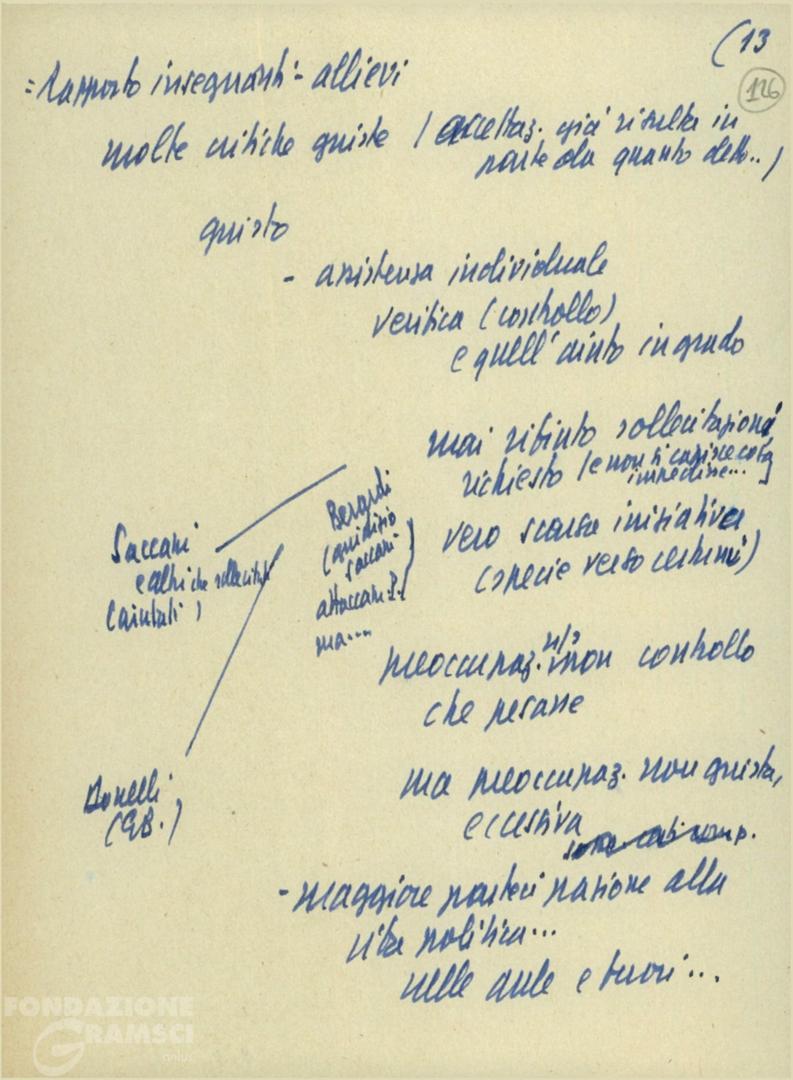 (13
126
= Rapporto insegnanti - allievi
molte critiche giuste (accettaz. già risulta in
parte da quanto detto..)
giusto
- assistenza individuale
verifica (controllo)
e quell'aiuto in grado
mai rifiuto sollecitazioni
richiesto (e non si capisce cosa
impedisse...
vero scarsa iniziativa
(specie verso certuni)
Berardi
(giudizio
Saccani
attaccam. P.
ma...
Saccani
e altri che sollecitati
(aiutati)
preoccupaz. ns/ non controllo
che pesasse
Donelli
(GB.)
ma preoccupaz. non giusta,
eccessiva
- maggiore partecipazione alla
vita politica...
nelle aule e fuori...
FONDAZIONE
GRAMSCI
onlus